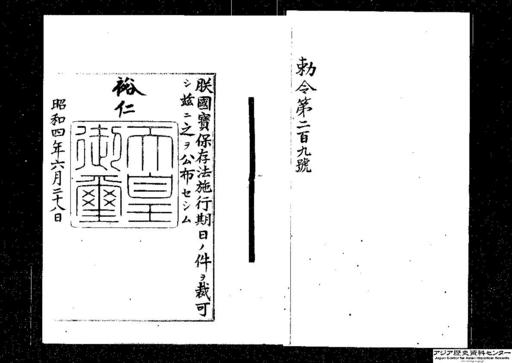 勅令第二百九號
朕國寶保存法施行期日ノ件ヲ裁可
シ茲ニ之ヲ公布セシム
裕仁
天皇
御璽
昭和四年六月二十八日
アジア歴史資料センター
Japan Center for Asian Historical Records